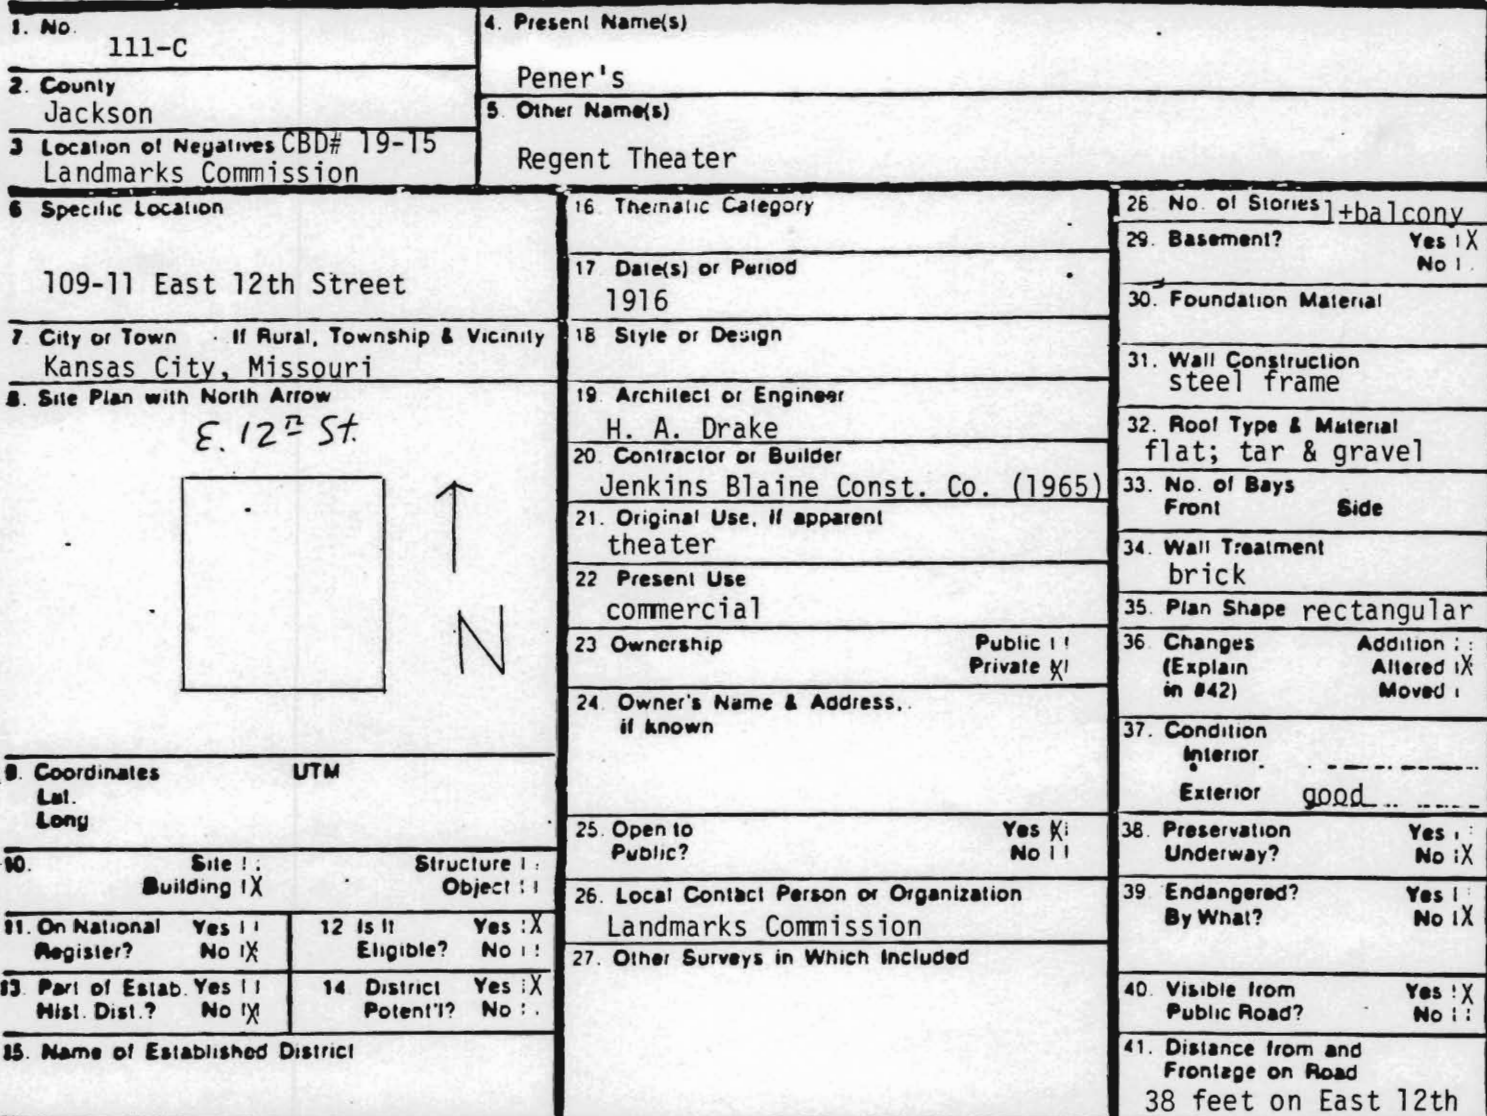 1. No.
111-C
2. County
Jackson
3 Location of Negatives CBD# 19-15
Landmarks Commission
4. Present Name(s)
Pener's
5. Other Name(s)
Regent Theater
6 Specific Location
109-11 East 12th Street
7. City or Town If Rural, Township & Vicinity
Kansas City, Missouri
8. Site Plan with North Arrow
E. 12th St.
N
9. Coordinates UTM
Lat.
Long
10. Site Structure
Building X Object
11. On National Yes
Register? No X
12 Is It Yes X
Eligible? No
13. Part of Estab. Yes
Hist. Dist.? No X
14 District Yes X
Potent'l? No
15. Name of Established District
16. Thematic Category
17 Date(s) or Period
1916
18 Style or Design
19. Architect or Engineer
H. A. Drake
20. Contractor or Builder
Jenkins Blaine Const. Co. (1965)
21. Original Use, if apparent
theater
22 Present Use
commercial
23 Ownership Public
Private X
24. Owner's Name & Address,
if known
25. Open to Yes X
Public? No
26. Local Contact Person or Organization
Landmarks Commission
27. Other Surveys in Which Included
28. No. of Stories 1+balcony
29. Basement? Yes X
No
30. Foundation Material
31. Wall Construction
steel frame
32. Roof Type & Material
flat; tar & gravel
33. No. of Bays
Front Side
34. Wall Treatment
brick
35. Plan Shape rectangular
36. Changes Addition
(Explain Altered X
in #42) Moved
37. Condition
Interior
Exterior good
38. Preservation Yes
Underway? No X
39. Endangered? Yes
By What? No X
40. Visible from Yes X
Public Road? No
41. Distance from and
Frontage on Road
38 feet on East 12th